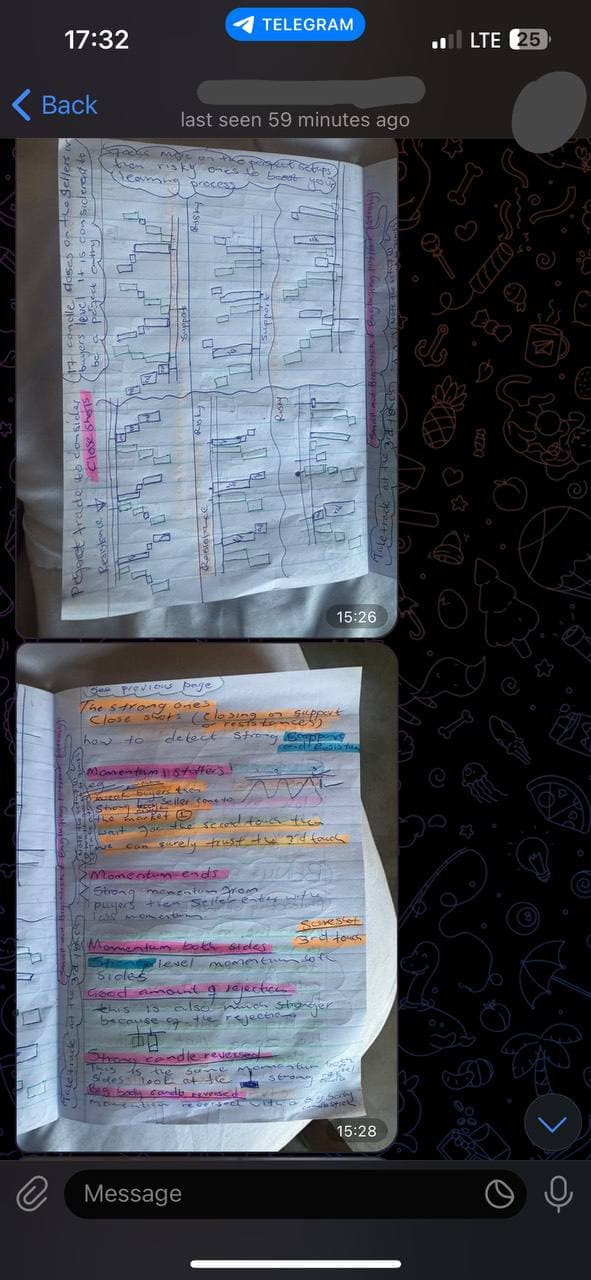 17:32
TELEGRAM
LTE
25
Back
last seen 59 minutes ago
Focus more on the perfect setups
than risky ones to boost your
learning process
If candle closes on the sellers or
buyers level it is considered to
be a perfect entry
Perfect trade to consider
Close shots
Resistance
Support
Risky
Support
Risky
Resistance
Risky
Take trade at the 3rd touch
15:26
See previous page
The strong ones
Close shots (closing on support
or resistance)
how to detect strong support
and resistance
Momentum starters
weak buyers then
strong seller came to
the market
wait for the second touch then
we can surely trust the 3rd touch
Momentum ends
Strong momentum from
buyers then seller entry with
less momentum
3rd touch
Momentum both sides
Strong level momentum both
sides
Good amount of rejection
this is also much stronger
because of the rejection
Strong candle reversed
This is the same momentum both
sides look at the strong
Big body candle reversed
momentum reversed with a big body
15:28
Message